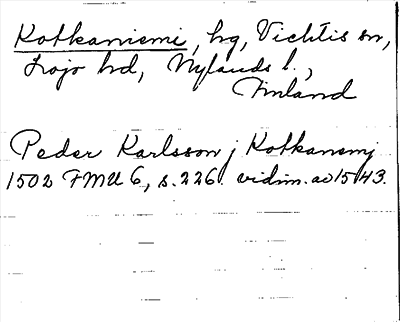 Kotkaniemi, hg, Vichtis sn,
Lojo hd, Nylands l.,
Finland
Peder Karlsson j Kotkanemj
1502 FMU 6, s. 226. vidim. av 1543.